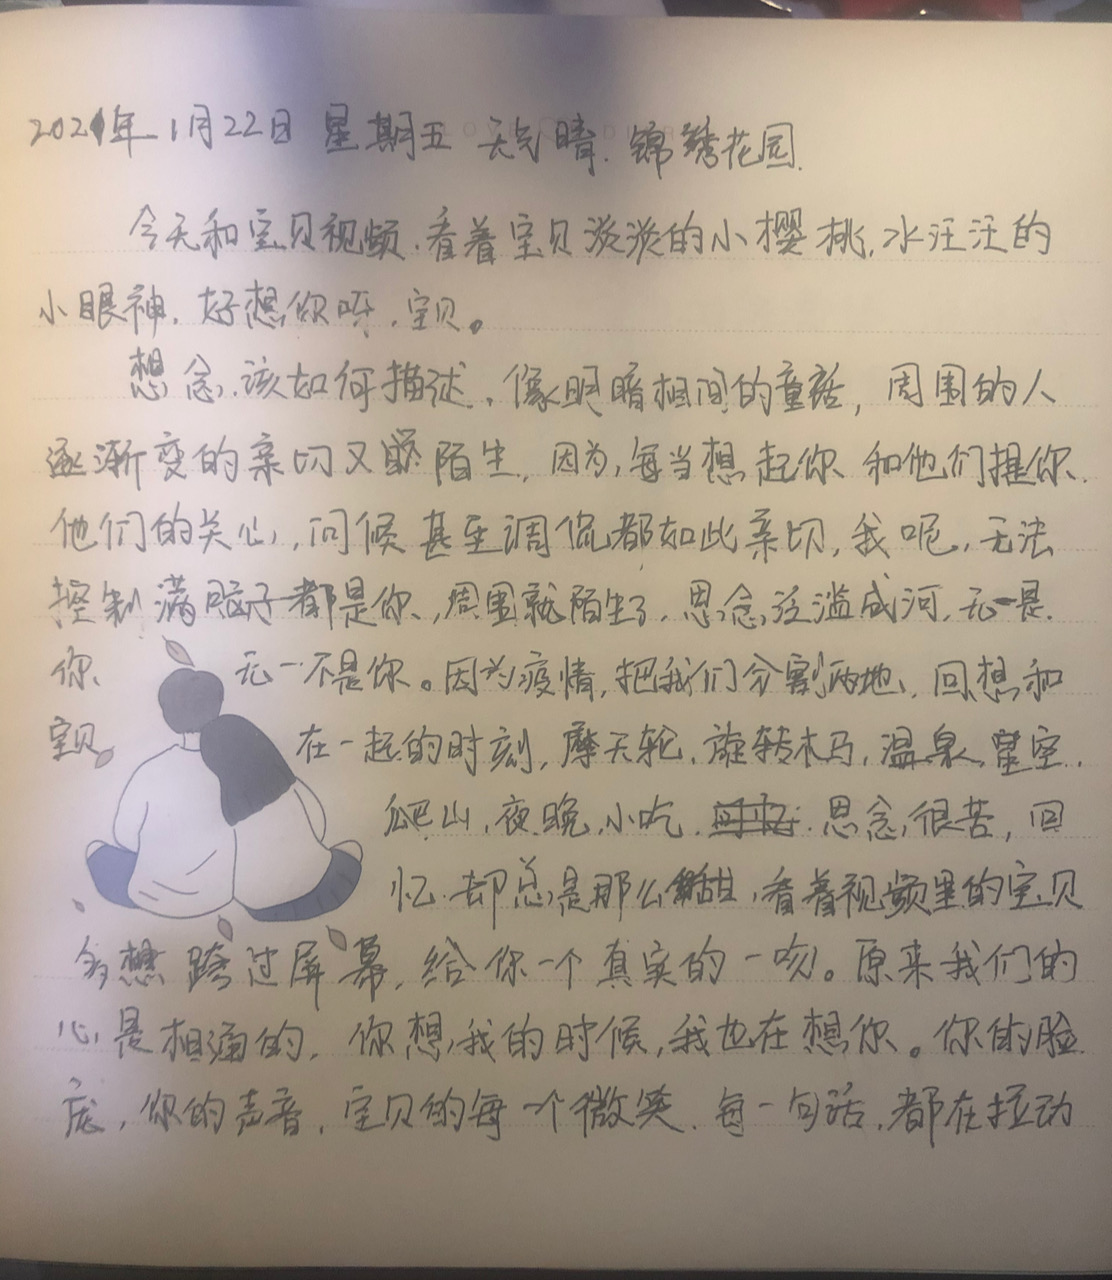 2021年1月22日 星期五 天气晴. 锦绣花园.
LOVE DIARY
今天和宝贝视频.看着宝贝淡淡的小樱桃,水汪汪的
小眼神.好想你呀.宝贝。
想念,该如何描述,像明暗相间的童话,周围的人
逐渐变的亲切又陌生,因为,每当想起你 和他们提你.
他们的关心,问候甚至调侃都如此亲切,我呢,无法
控制满脑子都是你,周围就陌生了.思念泛滥成河,无一是
你 无一不是你。因为疫情,把我们分割两地,回想和
宝贝 在一起的时刻,摩天轮.旋转木马,温泉,星空.
爬山,夜晚,小吃. 思念很苦,回
忆 却总是那么甜,看着视频里的宝贝
多想跨过屏幕,给你一个真实的一吻。原来我们的
心是相通的,你想我的时候,我也在想你。你的脸
庞,你的声音,宝贝的每一个微笑.每一句话.都在拉动